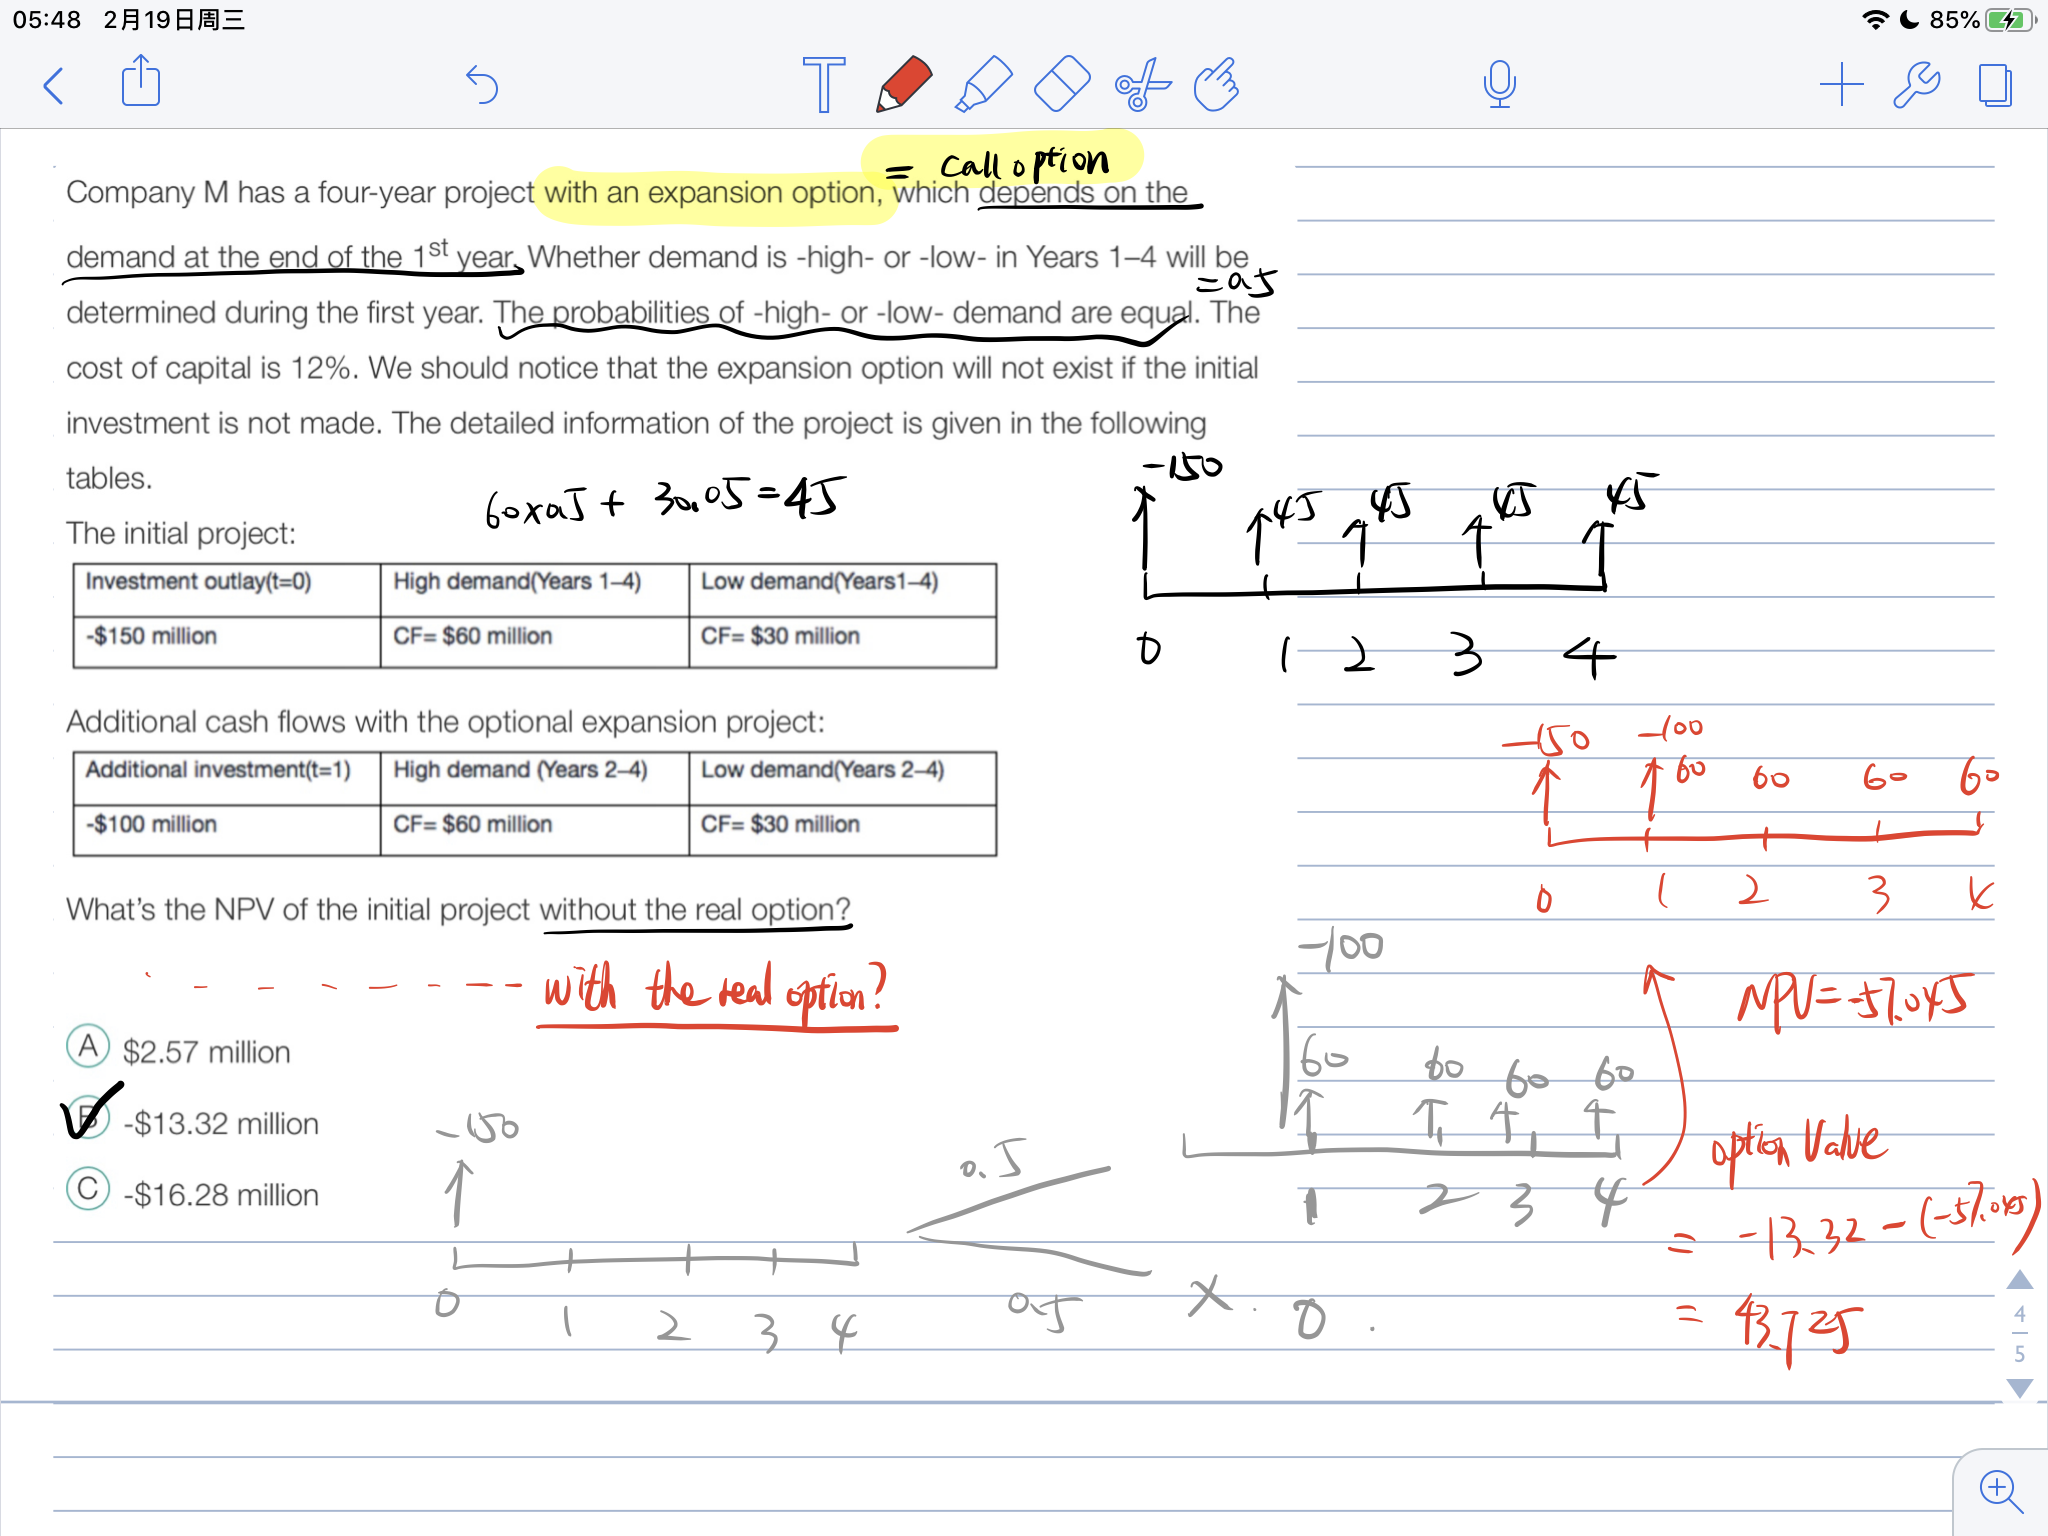 05:48 2月19日周三
85%
= Call option
Company M has a four-year project with an expansion option, which depends on the
demand at the end of the 1st year. Whether demand is -high- or -low- in Years 1–4 will be
=0.5
determined during the first year. The probabilities of -high- or -low- demand are equal. The
cost of capital is 12%. We should notice that the expansion option will not exist if the initial
investment is not made. The detailed information of the project is given in the following
tables.
60×0.5 + 30×0.5 = 45
-150 45 45 45 45
0 1 2 3 4
The initial project:
Investment outlay(t=0) High demand(Years 1–4) Low demand(Years1–4)
-$150 million CF= $60 million CF= $30 million
Additional cash flows with the optional expansion project:
Additional investment(t=1) High demand (Years 2–4) Low demand(Years 2–4)
-$100 million CF= $60 million CF= $30 million
-150 -100
60 60 60 60
0 1 2 3 4
What's the NPV of the initial project without the real option?
with the real option?
A $2.57 million
B -$13.32 million
C -$16.28 million
-150
0 1 2 3 4
0.5
0.5
-100
60 60 60 60
1 2 3 4
X. 0.
NPV=-57.045
option Value
= -13.32 - (-57.045)
= 43.725
4
5